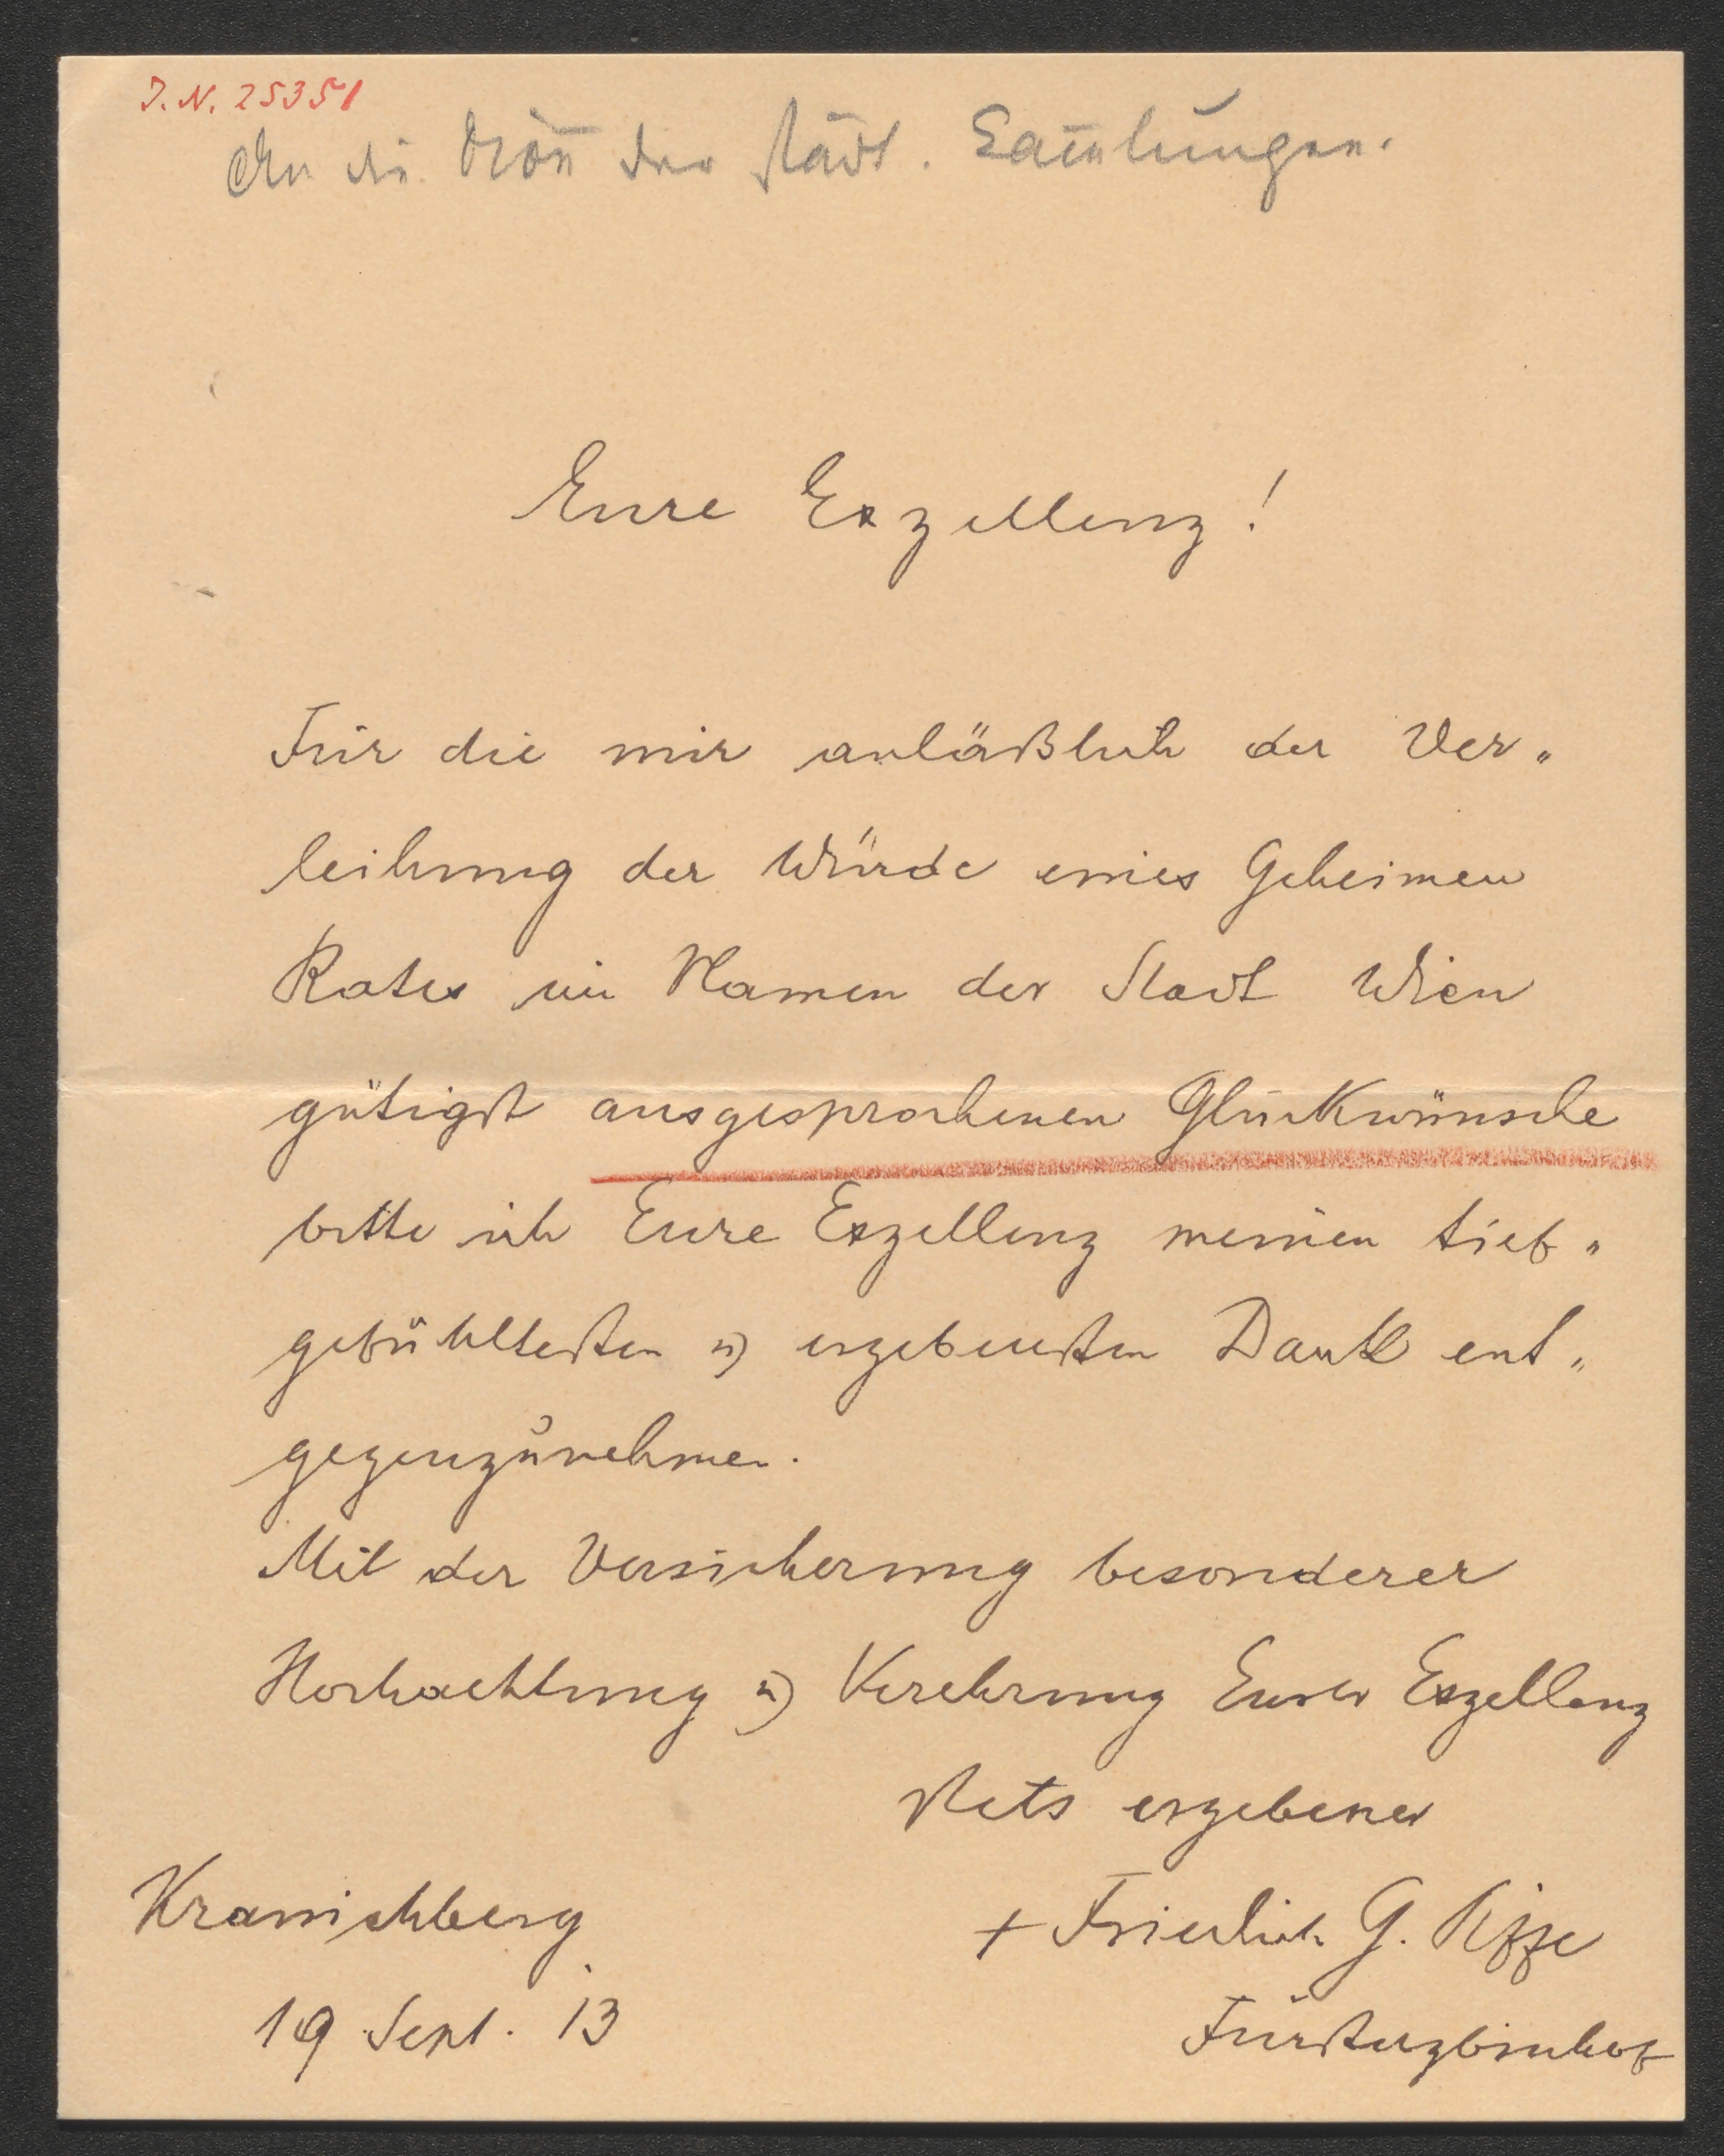 J. N. 25351
An die Dion der städt. Sam̄lungen.
Eure Exzellenz!
Für die mir anläßlich der Ver„
leihung der Würde eines Geheimen
Rates im Namen der Stadt Wien
gütigst ausgesprochenen Glückwünsche
bitte ich Eure Exzellenz meinen tief„
gefühltesten u) ergebensten Dank ent„
gegenzunehmen.
Mit der Versicherung besonderer
Hochachtung u) Verehrung Eurer Exzellenz
stets ergebener
Kranichberg
+ Friedrich G. Piffl
19. Sept. 13
Fürsterzbischof